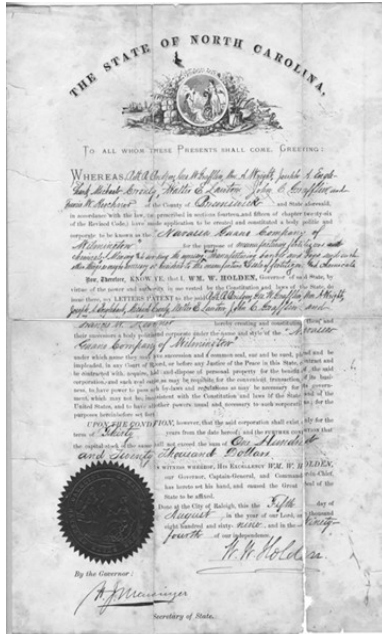 THE STATE OF NORTH CAROLINA,
TO ALL WHOM THESE PRESENTS SHALL COME, GREETING:
WHEREAS, Geo. W. Grafflin, Wm. A. Wright,
Michael Cronly, Wallis E. Lawton, John C. Grafflin and
in the County of Brunswick and State aforesaid,
in accordance with the law, (as prescribed in sections fourteen, and fifteen of chapter twenty-six
of the Revised Code,) have made application to be created and constituted a body politic and
corporate to be known as the Navassa Guano Company of
Wilmington for the purpose of manufacturing fertilizers and
chemicals
Now, Therefore, KNOW YE, that I, WM. W. HOLDEN, Governor of said State, by
virtue of the power and authority in me vested by the Constitution and laws of the State, do
issue these, my LETTERS PATENT to the said Geo. W. Grafflin, Wm. A. Wright,
Michael Cronly, Wallis E. Lawton, John C. Grafflin, and
hereby creating and constituting them and
their successors a body politic and corporate under the name and style of the "Navassa
Guano Company of Wilmington
under which name they may have succession and a common seal, sue and be sued, plead and be
impleaded, in any Court of Record, or before any Justice of the Peace in this State, contract and
be contracted with, acquire, hold and dispose of personal property for the benefit of the said
corporation, and such real estate as may be requisite for the convenient transaction of its business,
to have power to pass such by-laws and regulations as may be necessary for its government,
which may not be inconsistent with the Constitution and laws of the State and of the
United States, and to have other powers usual and necessary to such corporations, for the
purposes hereinbefore set forth.
UPON THE CONDITION, however, that the corporation shall exist only for the
term of Thirty years from the date hereof; and the further condition that
the capital stock of the same shall not exceed the sum of One Hundred
and Seventy Thousand Dollars.
IN WITNESS WHEREOF, HIS EXCELLENCY WM. W. HOLDEN,
our Governor, Captain-General, and Commander-in-Chief,
has hereto set his hand, and caused the Great Seal of the
State to be affixed.
Done at the City of Raleigh, this the Fifth day of
August in the year of our Lord, one thousand
eight hundred and sixty-nine and in the Ninety
fourth of our independence.
W. W. Holden
By the Governor:
Secretary of State.